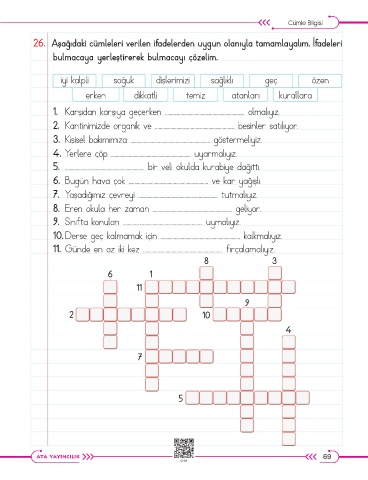 Cümle Bilgisi
26. Aşağıdaki cümleleri verilen ifadelerden uygun olanıyla tamamlayalım. İfadeleri
bulmacaya yerleştirerek bulmacayı çözelim.
iyi kalpli soğuk dişlerimizi sağlıklı geç özen
erken dikkatli temiz atanları kurallara
1. Karşıdan karşıya geçerken ........................ olmalıyız.
2. Kantinimizde organik ve ........................ besinler satılıyor.
3. Kişisel bakımımıza ........................ göstermeliyiz.
4. Yerlere çöp ........................ uyarmalıyız.
5. ........................ bir veli okulda kurabiye dağıttı.
6. Bugün hava çok ........................ ve kar yağışlı.
7. Yaşadığımız çevreyi ........................ tutmalıyız.
8. Eren okula her zaman ........................ geliyor.
9. Sınıfta konulan ........................ uymalıyız.
10. Derse geç kalmamak için ........................ kalkmalıyız.
11. Günde en az iki kez ........................ fırçalamalıyız.
8 3
6 1
11
9
2 10
4
7
5
ATA YAYINCILIK
69